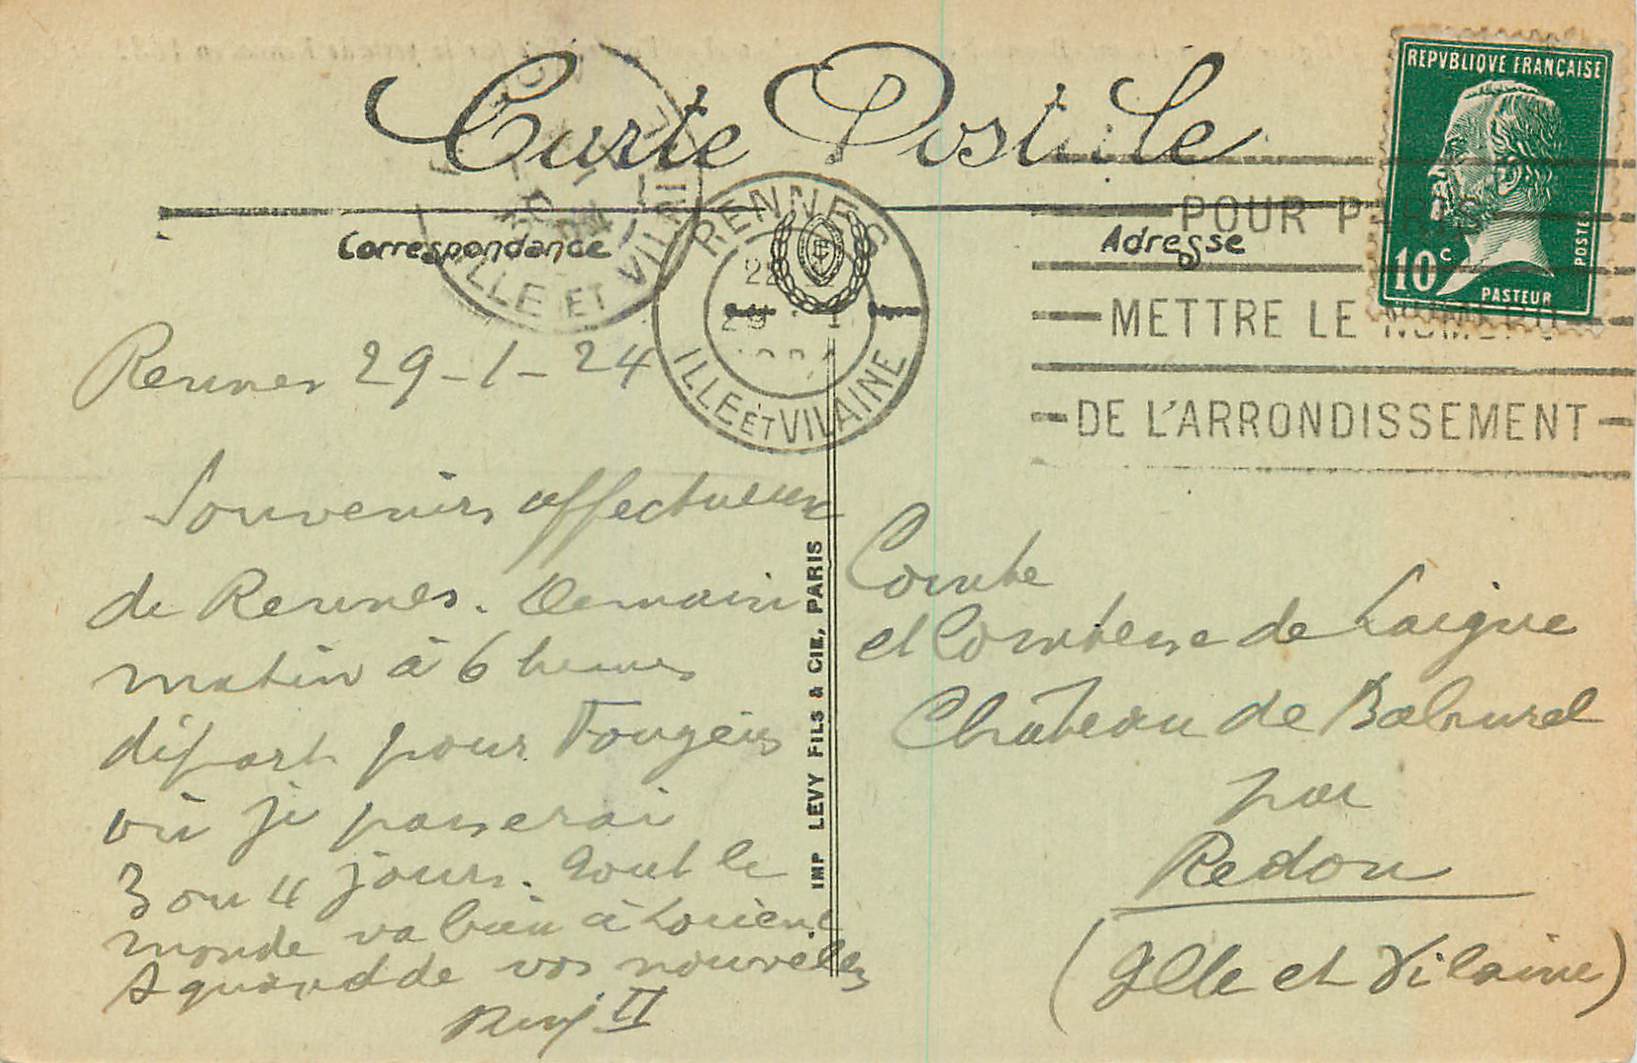 Carte Postale
Correspondance
Adresse
REPVBLIQVE FRANÇAISE
10c
POSTES
PASTEUR
RENNES
29
ILLE ET VILAINE
ILLE ET VILAINE
POUR PARIS
METTRE LE NUMERO
DE L'ARRONDISSEMENT
Rennes 29-1-24
Souvenirs affectueux
de Rennes. Demain
matin à 6 heures
départ pour Fougères
où je passerai
3 ou 4 jours. Tout le
monde va bien à Lorient
A quand de vos nouvelles
II
IMP LÉVY FILS & CIE, PARIS
Comte
et Comtesse de Laigue
Château de Bahurel
par
Redon
(Ille et Vilaine)